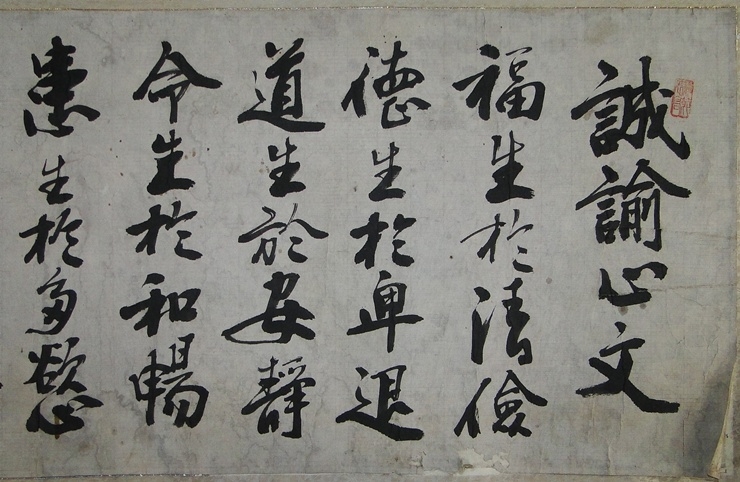 誠諭心文
福生於淸儉
德生於卑退
道生於安靜
命生於和暢
患生於多慾